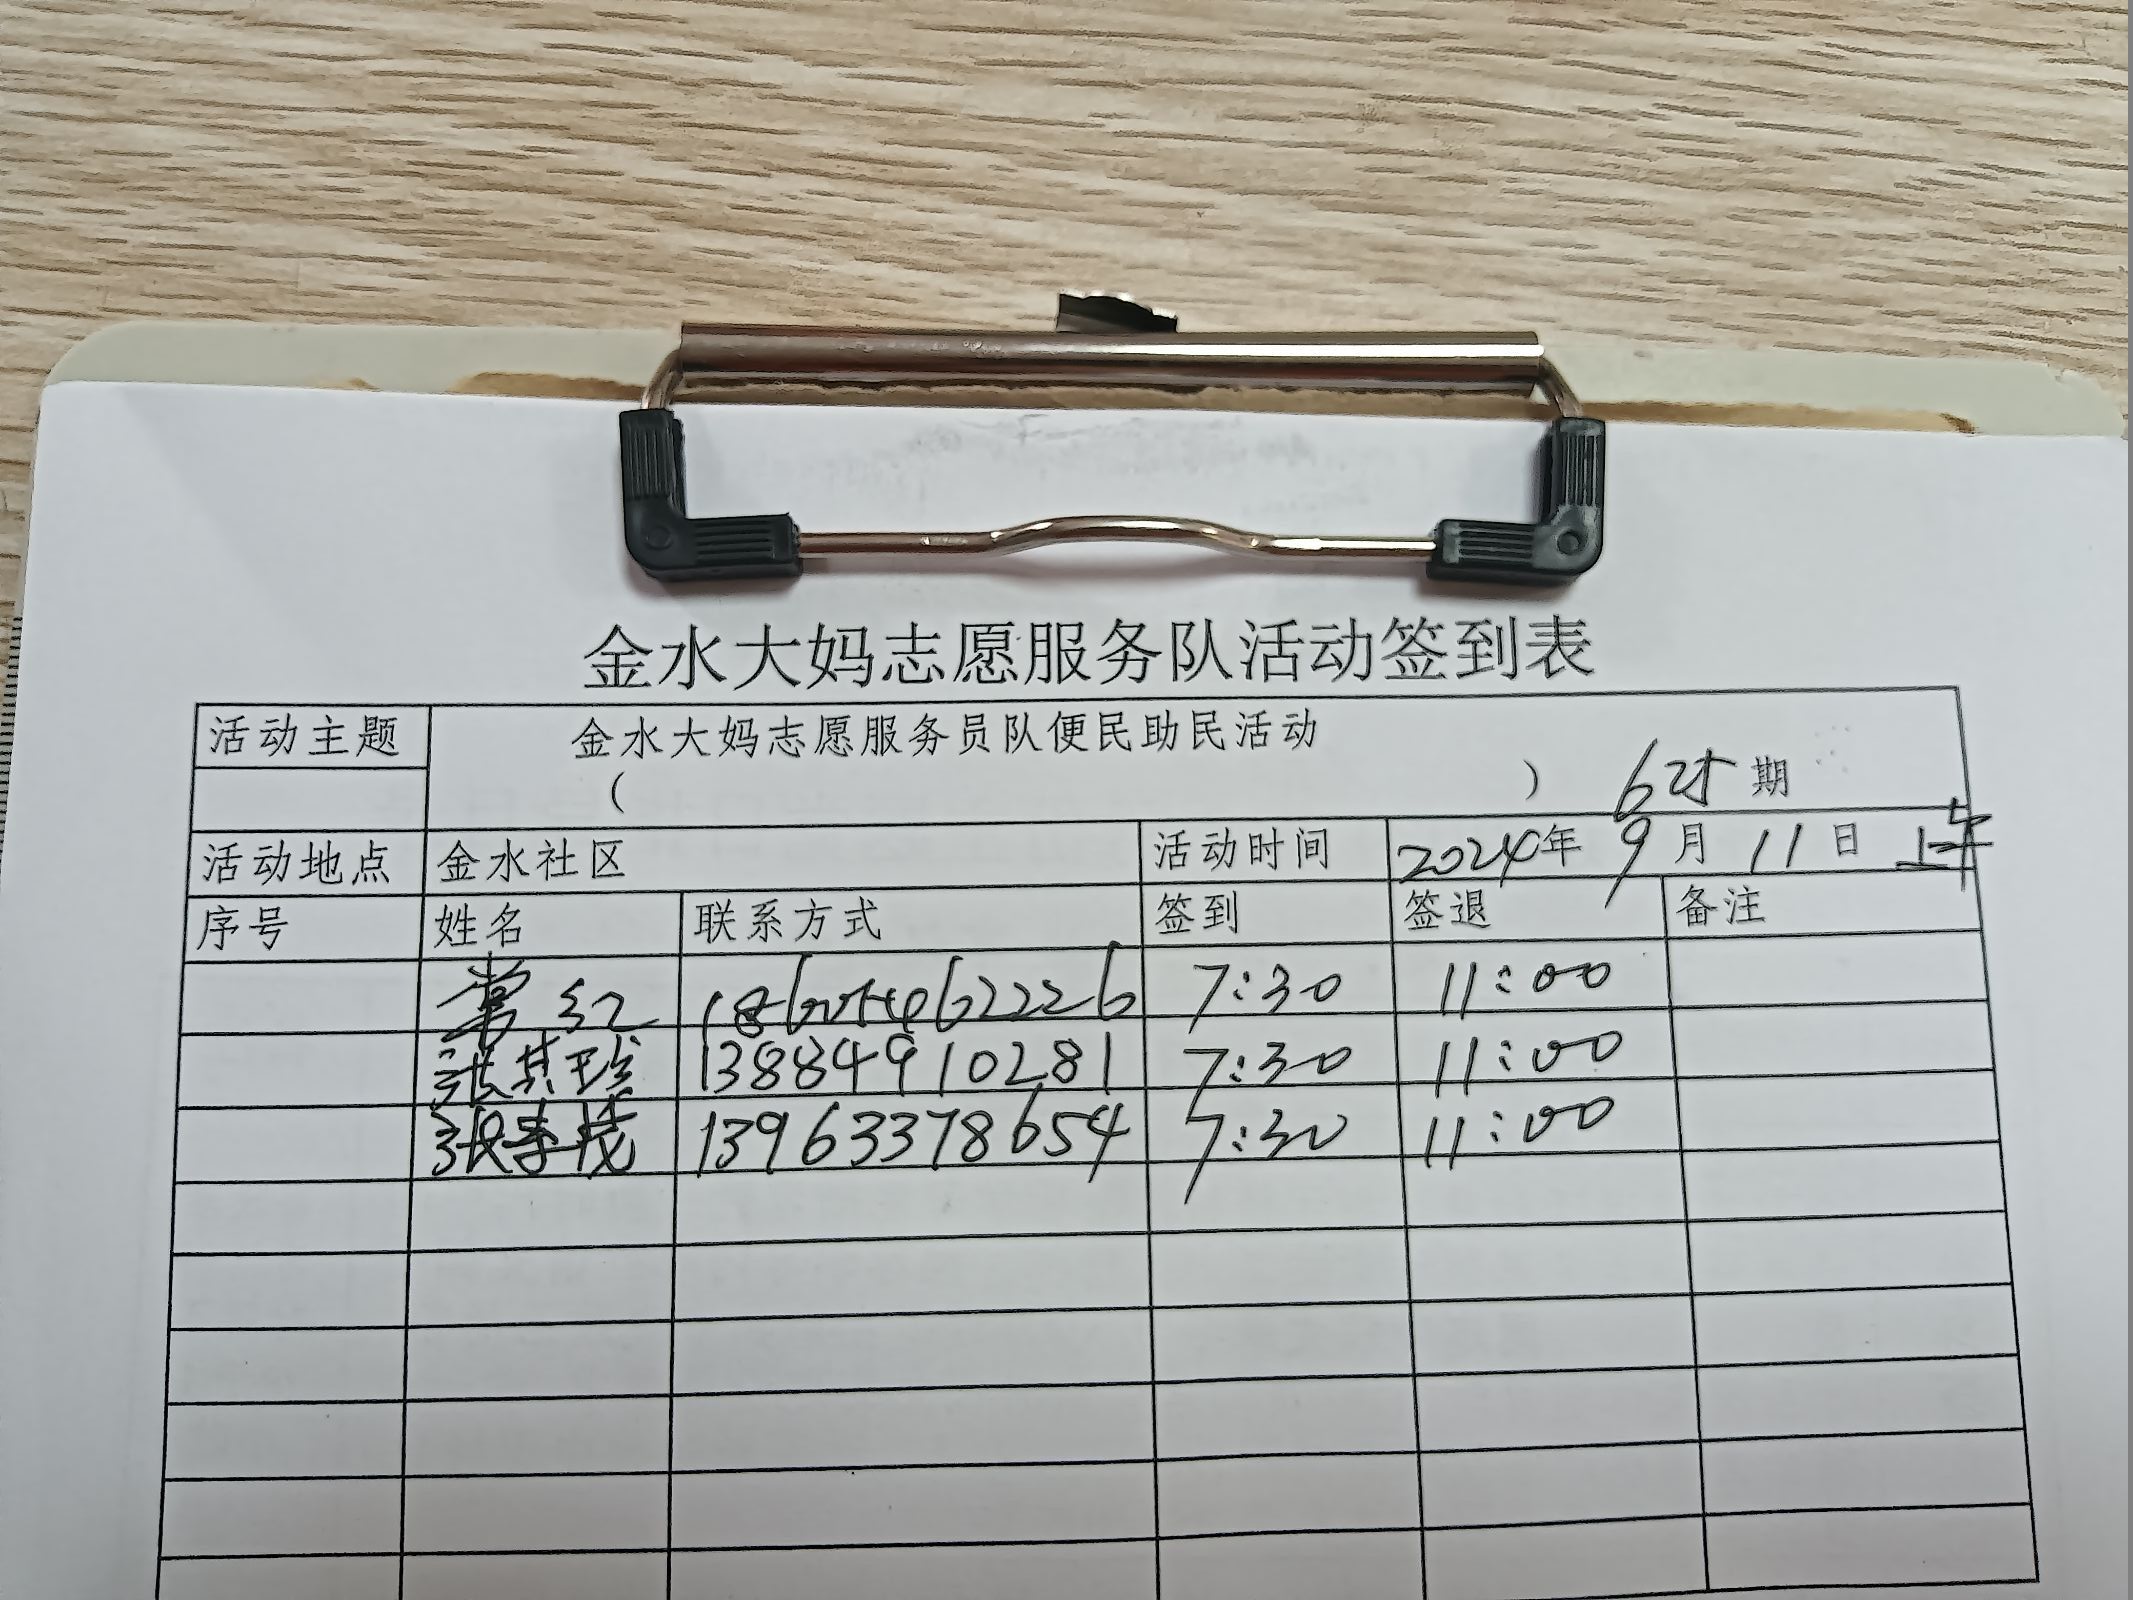 金水大妈志愿服务队活动签到表
活动主题 金水大妈志愿服务员队便民助民活动
（ ） 625 期
活动地点 金水社区 活动时间 2024年 9 月 11 日 上午
序号 姓名 联系方式 签到 签退 备注
常红 7:30 11:00
张其珍 13884910281 7:30 11:00
张 13963378654 7:30 11:00